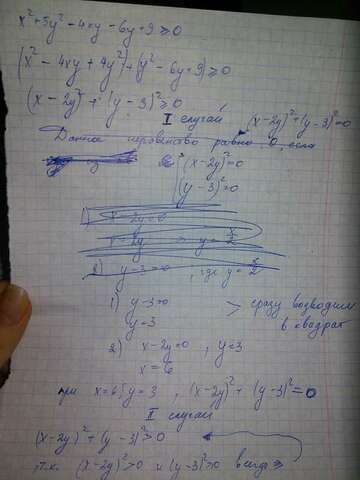 x²+5y²-4xy-6y+9≥0
(x²-4xy+4y²)+(y²-6y+9)≥0
(x-2y)²+(y-3)²≥0
I случай (x-2y)²+(y-3)²=0
Данное неравенство равно 0, если
(x-2y)²=0
(y-3)²=0
1) x-2y=0
x=2y y=x/2
2) y-3=0, где y=x/2
1) y-3=0 > сразу возводим
y=3 в квадрат
2) x-2y=0, y=3
x=6
при x=6; y=3, (x-2y)²+(y-3)²=0
II случай
(x-2y)²+(y-3)²>0
т.к. (x-2y)²>0 и (y-3)²>0 всегда